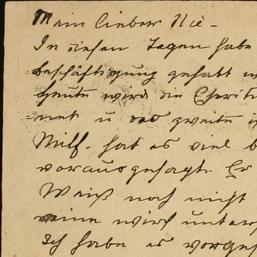 Mein lieber Nie-
In diesen Tagen habe
beschäftigung gehabt
heute wird die
net u das zweite
Milh. hat es viel b
vorausgesagt. Er
Weiß noch nicht
meine wird unter
Ich habe es vorges